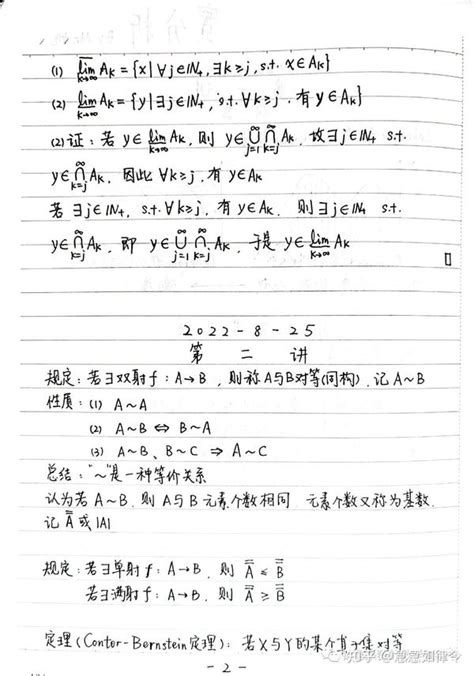 (1) $\overline{\lim}_{k→∞}$ A_k = {x | ∀j∈ℕ₊, ∃k≥j, s.t. x∈A_k}
(2) $\underline{\lim}_{k→∞}$ A_k = {y | ∃j∈ℕ₊, s.t. ∀k≥j, 有 y∈A_k}
(2)证：若 y∈$\underline{\lim}_{k→∞}$ A_k, 则 y∈⋃_{j=1}^∞ ⋂_{k=j}^∞ A_k, 故∃j∈ℕ₊ s.t.
y∈⋂_{k=j}^∞ A_k, 因此 ∀k≥j, 有 y∈A_k
若 ∃j∈ℕ₊, s.t. ∀k≥j, 有 y∈A_k, 则∃j∈ℕ₊ s.t.
y∈⋂_{k=j}^∞ A_k, 即 y∈⋃_{j=1}^∞ ⋂_{k=j}^∞ A_k, 于是 y∈$\underline{\lim}_{k→∞}$ A_k □
2022-8-25
第 二 讲
规定：若∃双射 f：A→B, 则称A与B对等(同构), 记A~B
性质：(1) A~A
(2) A~B ⇔ B~A
(3) A~B、B~C ⇒ A~C
总结："~"是一种等价关系
认为若A~B, 则A与B元素个数相同, 元素个数又称为基数,
记 $\overline{\overline{A}}$ 或 |A|
规定：若∃单射 f：A→B, 则 $\overline{\overline{A}}$ ≤ $\overline{\overline{B}}$
若∃满射 f：A→B, 则 $\overline{\overline{A}}$ ≥ $\overline{\overline{B}}$
定理 (Contor-Bernstein定理)：若X与Y的某个真子集对等
- 2 -
知乎 @意意如律令